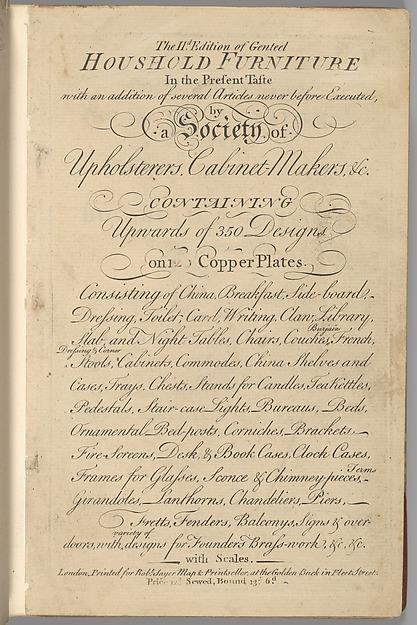 The IId. Edition of Genteel
HOUSHOLD FURNITURE
In the Present Taste
with an addition of several Articles never before Executed,
by
a Society of
Upholsterers, Cabinet-Makers, &c.
CONTAINING
Upwards of 350 Designs
on Copper Plates.
Consisting of China, Breakfast, Side-board,
Dressing, Toilet, Card, Writing, Claw, Library,
Slab, and Night Tables, Chairs, Couches, French,
Burjair
Dressing & Corner
Stools, Cabinets, Commodes, China Shelves and
Cases, Trays, Chests, Stands for Candles, Tea Kettles,
Pedestals, Stair-case Lights, Bureaus, Beds,
Ornamental Bed-posts, Corniches, Brackets,
Fire-Screens, Desk, & Book Cases, Clock Cases,
Terms
Frames for Glasses, Sconce & Chimney-pieces,
Girandoles, Lanthorns, Chandeliers, Piers,
Fretts, Fenders, Balconys, Signs & over
variety of
doors, with designs for Founders Brass-work, &c. &c.
with Scales.
London, Printed for Robt. Sayer Map & Printseller, at the Golden Buck in Fleet Street.
Price Sewed, Bound 13s. 6d.